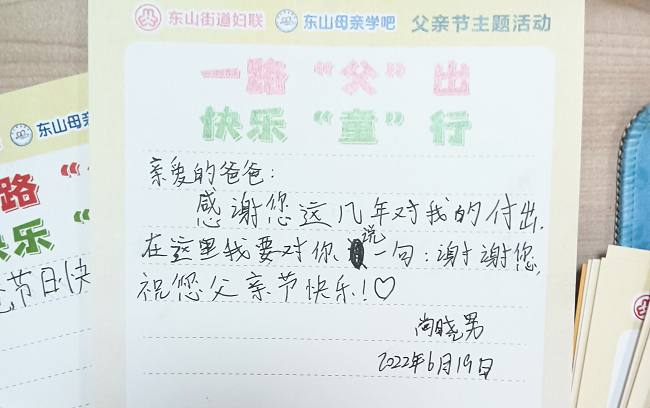 东山街道妇联 东山母亲学吧 父亲节主题活动
一路“父”出
快乐“童”行
亲爱的爸爸:
感谢您这几年对我的付出.
在这里我要对你说一句:谢谢您,
祝您父亲节快乐!♡
尚晓男
2022年6月19日
东山母亲
路“
快乐“
节日快